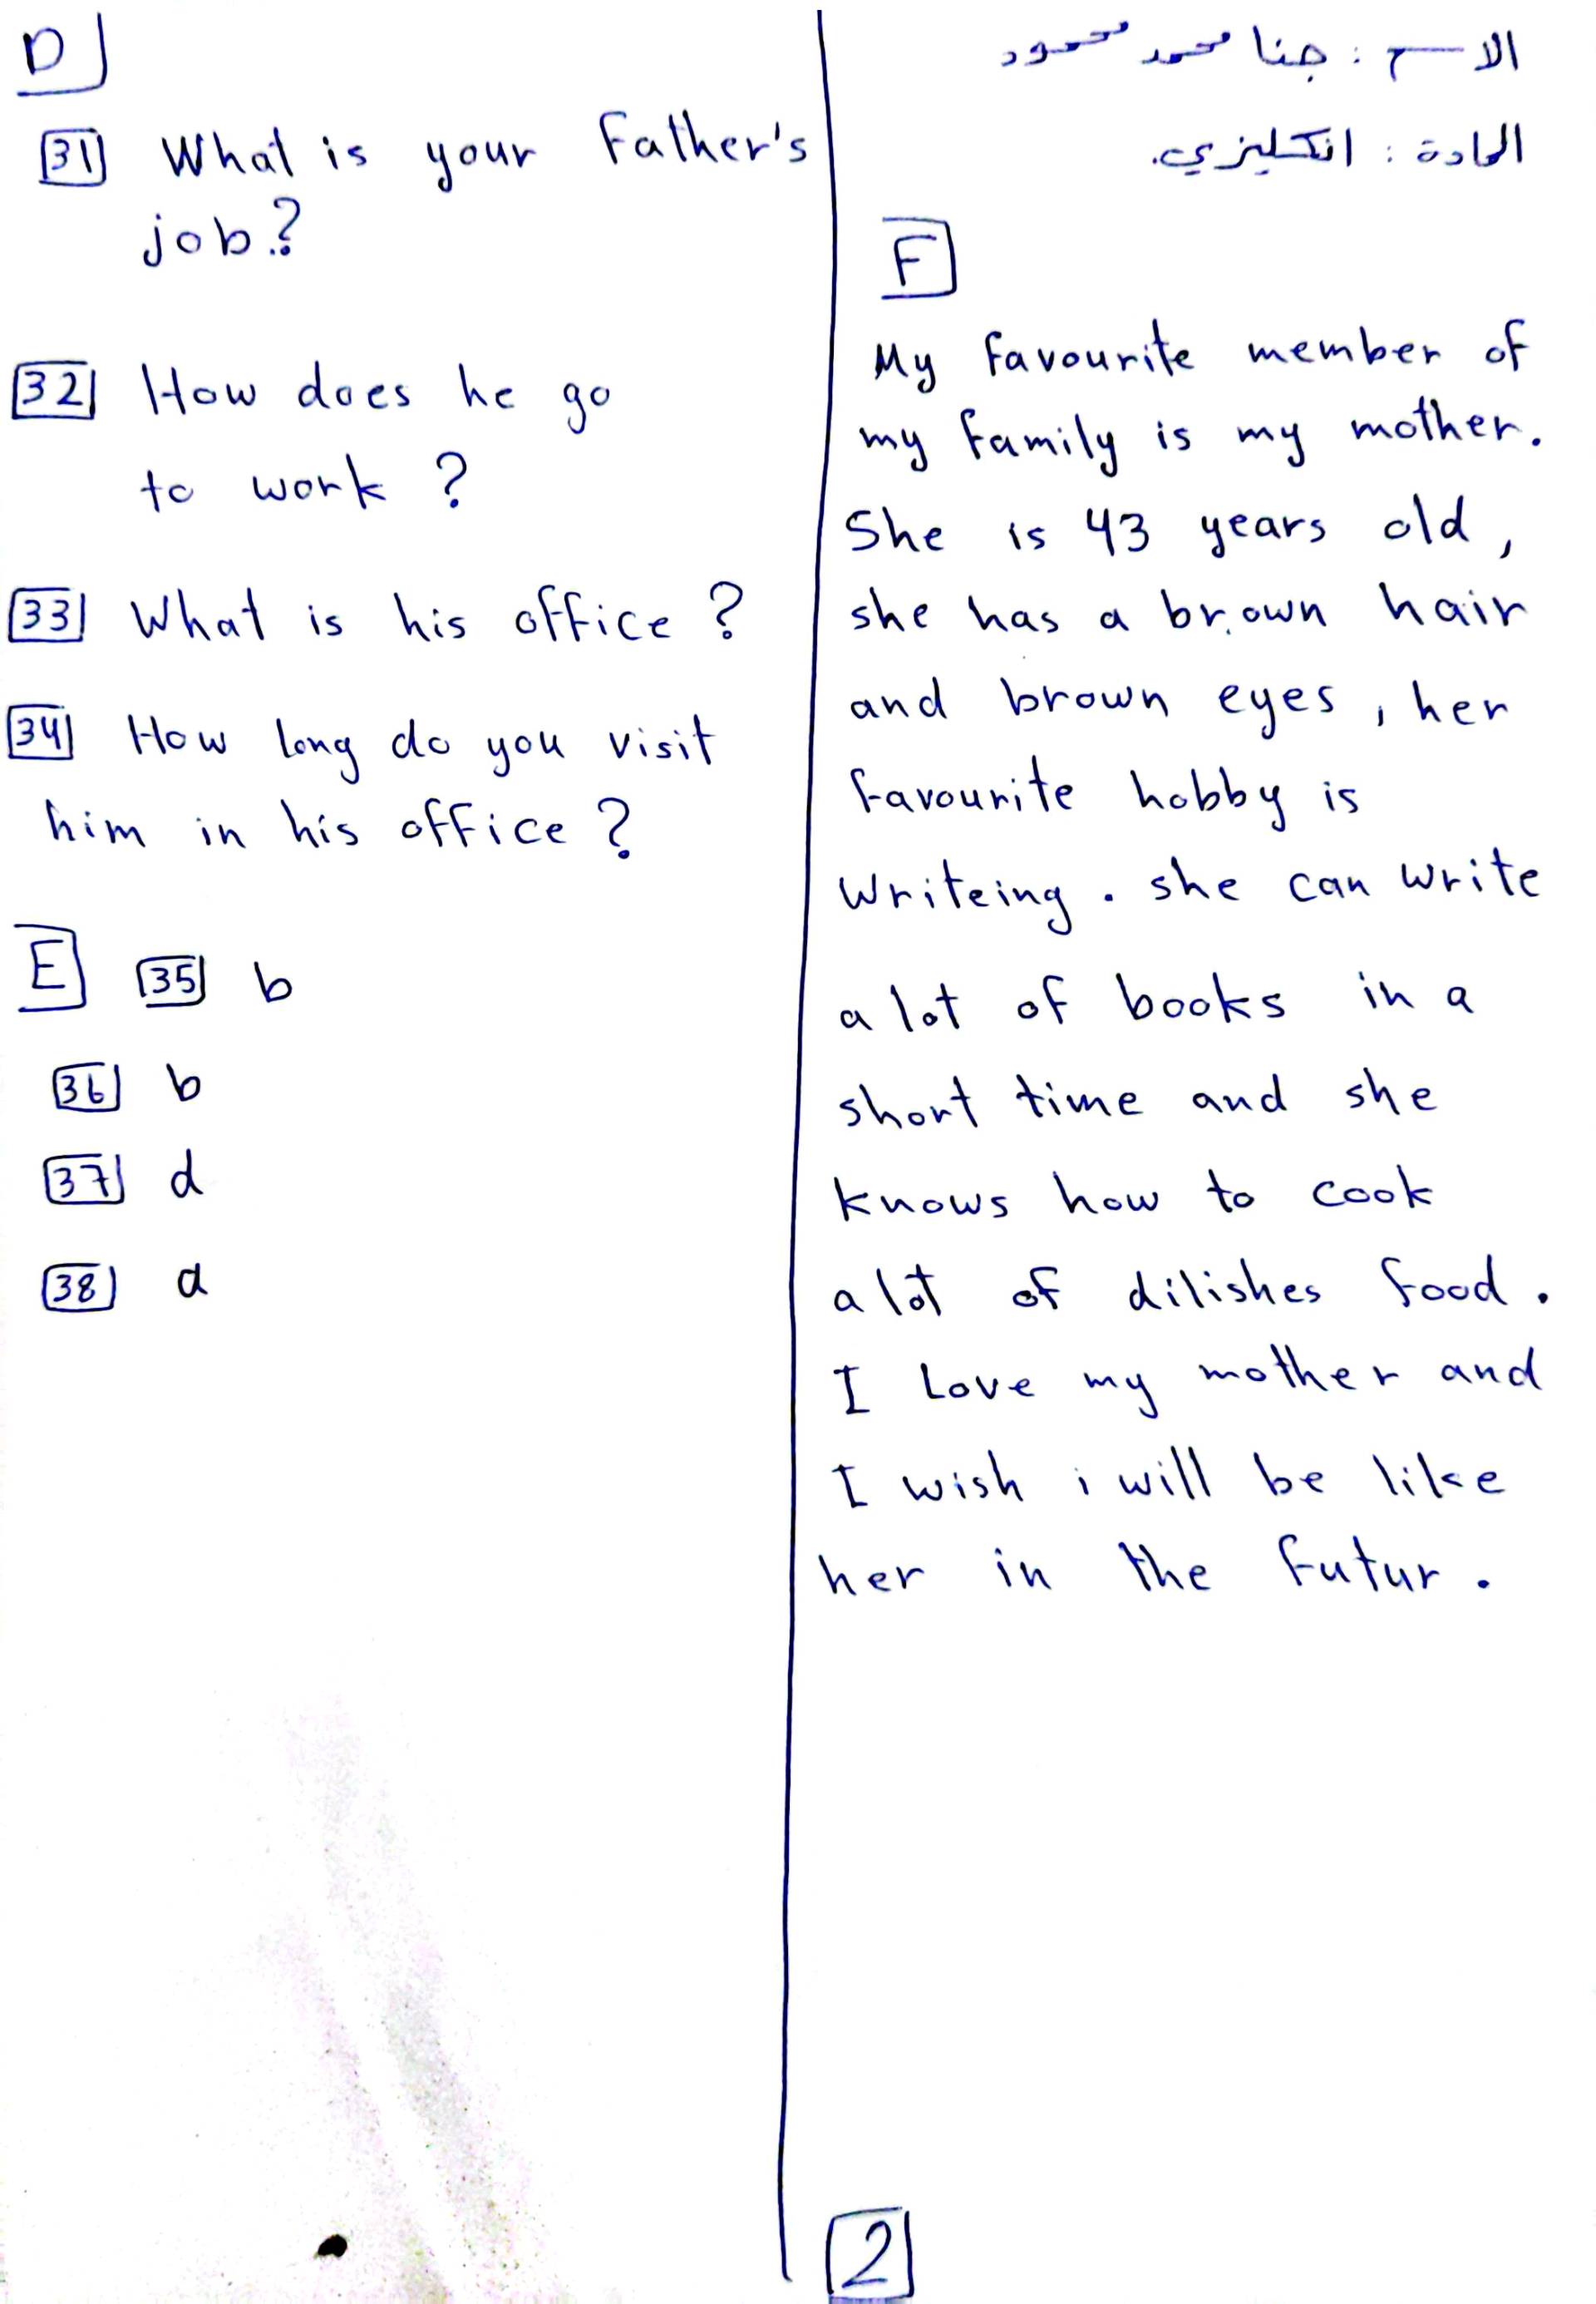 D
31 What is your Father's
job?
32 How does he go
to work ?
33 What is his office ?
34 How long do you visit
him in his office ?
E 35 b
36 b
37 d
38 a
الاسم : جنا محمد محمود
المادة : انكليزي.
F
My favourite member of
my family is my mother.
She is 43 years old ,
she has a brown hair
and brown eyes , her
favourite hobby is
writeing . she can write
a lot of books in a
short time and she
knows how to cook
a lot of dilishes food .
I Love my mother and
I wish i will be like
her in the futur .
2